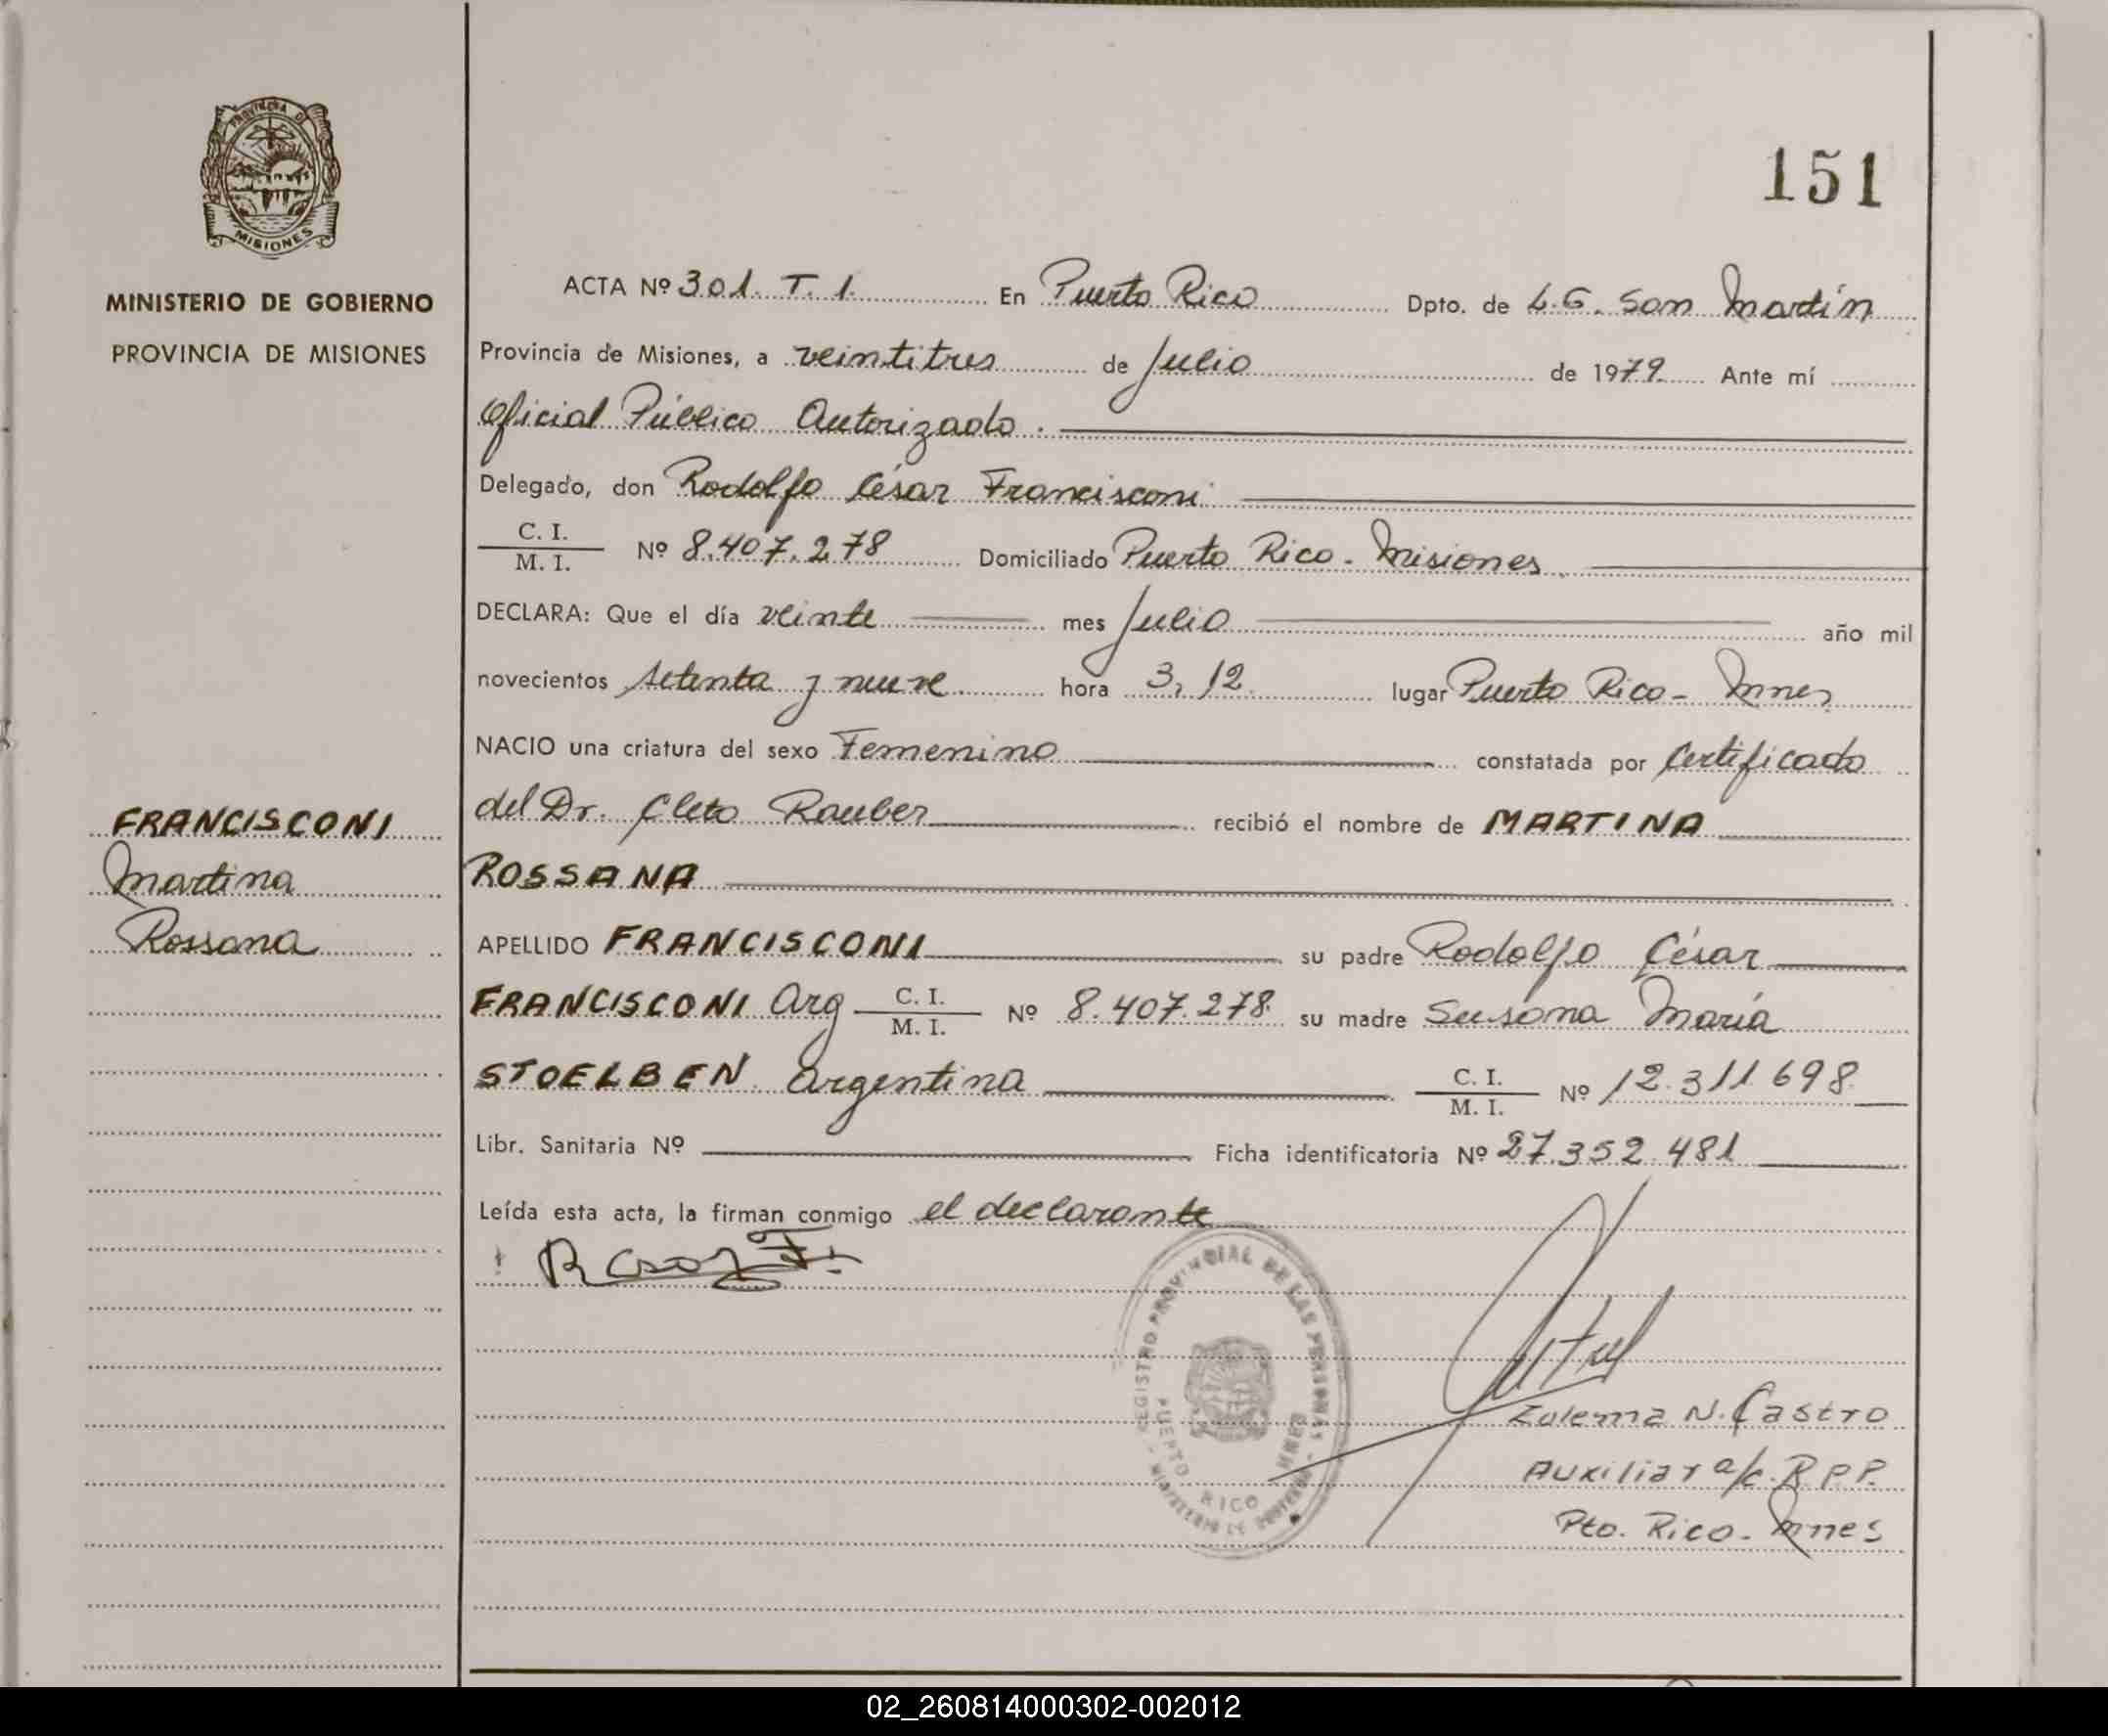 PROVINCIA D
MISIONES
MINISTERIO DE GOBIERNO
PROVINCIA DE MISIONES
FRANCISCONI
Martina
Rossana
151
ACTA Nº 301. T. 1. En Puerto Rico Dpto. de L.G. San Martín
Provincia de Misiones, a veintitres de Julio de 1979. Ante mí
Oficial Público Autorizado.
Delegado, don Rodolfo César Francisconi
C. I.
M. I. Nº 8.407.278 Domiciliado Puerto Rico - Misiones
DECLARA: Que el día veinte mes Julio año mil
novecientos setenta y nueve hora 3,12 lugar Puerto Rico - Mnes
NACIO una criatura del sexo Femenino constatada por Certificado
del Dr. Cleto Rauber recibió el nombre de MARTINA
ROSSANA
APELLIDO FRANCISCONI su padre Rodolfo César
FRANCISCONI Arg C. I. M. I. Nº 8.407.278 su madre Susana María
STOELBEN Argentina C. I. M. I. Nº 12.311.698
Libr. Sanitaria Nº Ficha identificatoria Nº 27.352.481
Leída esta acta, la firman conmigo el declarante
REGISTRO PROVINCIAL DE LAS PERSONAS - MINISTERIO DE GOBIERNO
PUERTO RICO MNES
Zulema N. Castro
Auxiliar a/c. R.P.P.
Pto. Rico - Mnes
02_260814000302-002012